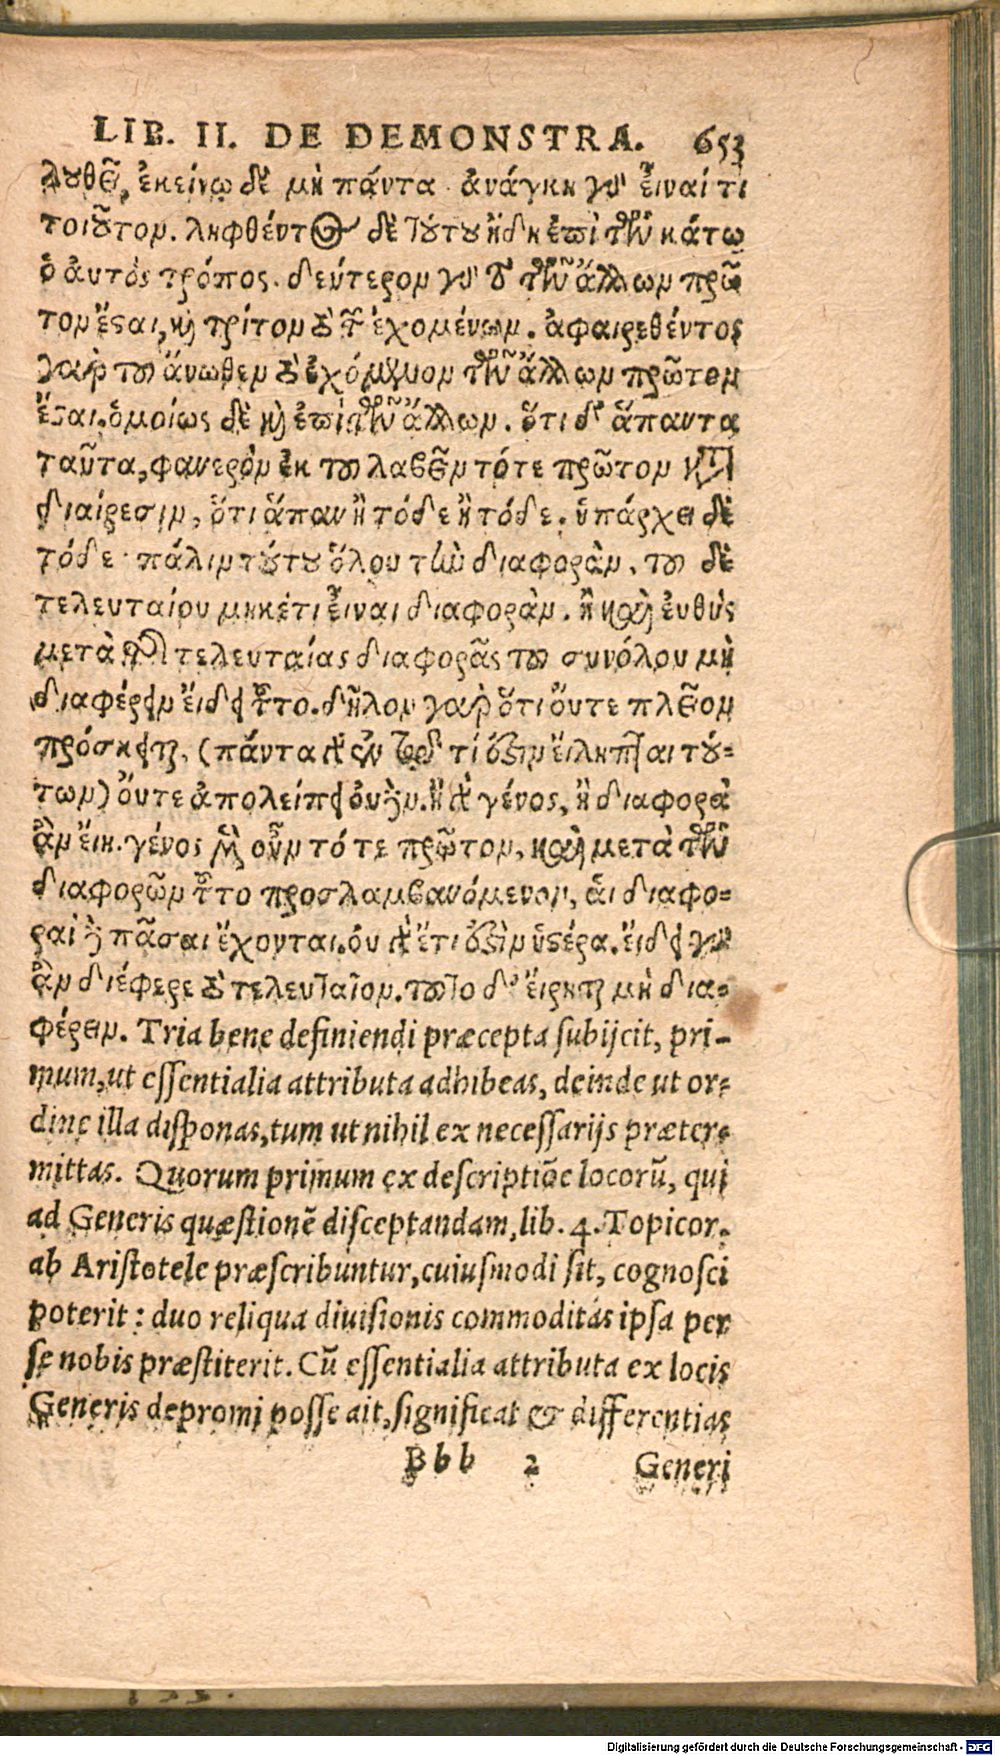 LIB. II. DE DEMONSTRA. 653
λουθεῖ, ἐκείνῳ δὲ μὴ πάντα. ἀνάγκη γὸ εἶναί τι
τοιοῦτον. ληφθέντος δὲ τούτου ἤδη ἐπὶ τῶν κάτω
ὁ αὐτὸς τρόπος. δεύτερον γὸ τὸ τῶν ἄλλων πρῶ
τον ἔσται, καὶ τρίτον τὸ τῶν ἐχομένων. ἀφαιρεθέντος
γὰρ τοῦ ἄνωθεν τὸ ἐχόμενον τῶν ἄλλων πρῶτον
ἔσται. ὁμοίως δὲ καὶ ἐπὶ τῶν ἄλλων. ὅτι δ' ἅπαντα
ταῦτα, φανερὸν ἐκ τοῦ λαβεῖν τότε πρῶτον κατὰ
διαίρεσιν, ὅτι ἅπαν ἢ τόδε ἢ τόδε. ὑπάρχει δὲ
τόδε· πάλιν τούτου ὅλου τὴν διαφορὰν. τοῦ δὲ
τελευταίου μηκέτι εἶναι διαφορὰν. ἢ καὶ εὐθὺς
μετὰ τῆς τελευταίας διαφορᾶς τοῦ συνόλου μὴ
διαφέρειν εἴδει τοῦτο. δῆλον γὰρ ὅτι οὔτε πλεῖον
πρόσκειται, (πάντα γὰρ ἐν τῷ τί ἐστιν εἴληπται τού-
των) οὔτε ἀπολείπει οὐδέν. ἢ γὰρ γένος, ἢ διαφορὰ
ἂν εἴη. γένος μὲν οὖν τότε πρῶτον, καὶ μετὰ τῶν
διαφορῶν τοῦτο προσλαμβανόμενον, αἱ διαφο-
ραὶ δὲ πᾶσαι ἔχονται. οὐ γὰρ ἔτι ἐστὶν ὑστέρα. εἴδει γὸ
ἂν διέφερε τὸ τελευταῖον. τοῦτο δ' εἴρηται μὴ δια-
φέρειν. Tria bene definiendi præcepta subijcit, pri-
mum, ut essentialia attributa adhibeas, deinde ut or-
dine illa disponas, tum ut nihil ex necessarijs præter-
mittas. Quorum primum ex descriptiõe locorũ, qui
ad Generis quæstionẽ disceptandam, lib. 4. Topicor.
ab Aristotele præscribuntur, cuiusmodi sit, cognosci
poterit: duo reliqua diuisionis commoditas ipsa per
se nobis præstiterit. Cũ essentialia attributa ex locis
Generis depromi posse ait, significat & differentias
Bbb 2 Generi
Digitalisierung gefördert durch die Deutsche Forschungsgemeinschaft - DFG